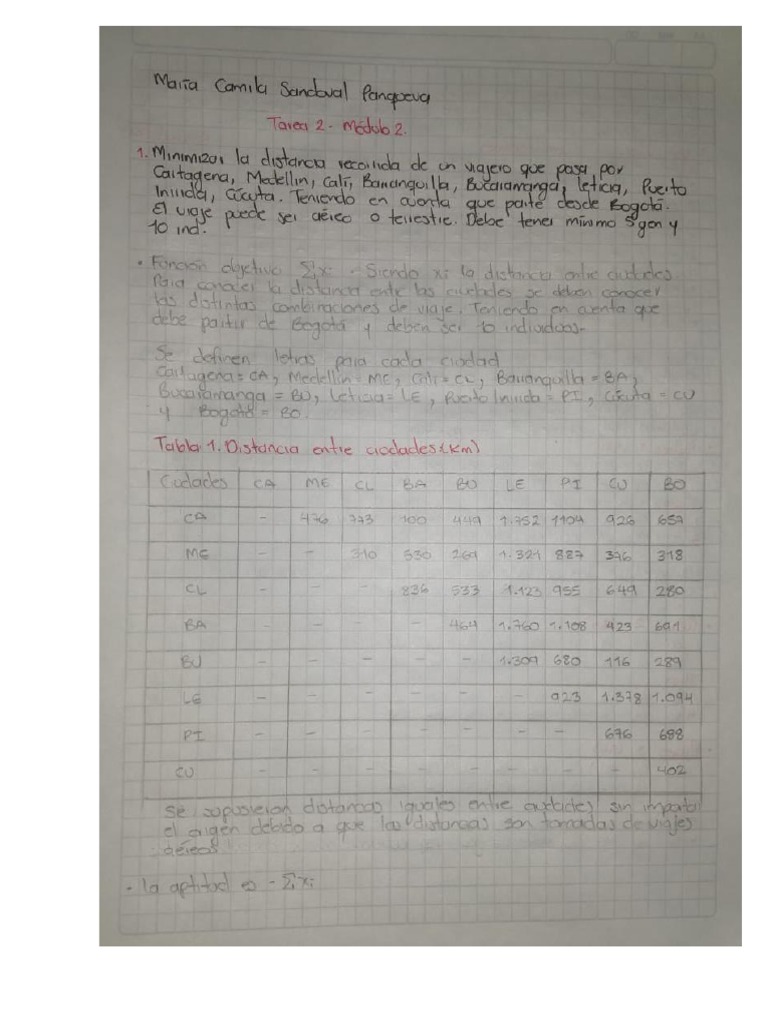 Maria Camila Sandoval Panqueva
Tarea 2 - Módulo 2.
1. Minimizar la distancia recorrida de un viajero que pasa por
Cartagena, Medellin, Cali, Barranquilla, Bucaramanga, leticia, Puerto
Inirida, Cúcuta. Teniendo en cuenta que parte desde Bogotá.
El viaje puede ser aéreo o terrestre. Debe tener mínimo 5 gen y
10 ind.
• Función objetivo Σxi - Siendo xi la distancia entre ciudades
Para conocer la distancia entre las ciudades se deben conocer
las distintas combinaciones de viaje. Teniendo en cuenta que
debe partir de Bogotá y deben ser 10 individuos.
Se definen letras para cada ciudad
Cartagena = CA, Medellin = ME, Cali = CL, Barranquilla = BA,
Bucaramanga = BU, Leticia = LE, Puerto Inirida = PI, Cúcuta = CU
y Bogotá = BO.
Tabla 1. Distancia entre ciudades (km)
Ciudades CA ME CL BA BU LE PI CU BO
CA - 476 773 100 449 1.752 1104 926 657
ME - - 310 530 269 1.321 887 396 318
CL - - - 836 533 1.123 955 649 280
BA - - - - 464 1.760 1.108 423 691
BU - - - - - 1.309 680 116 289
LE - - - - - - 923 1.378 1.094
PI - - - - - - - 676 688
CU - - - - - - - - 402
Se suposieron distancias iguales entre ciudades sin importar
el origen debido a que las distancias son tomadas de viajes
aéreos.
• la aptitud es - Σxi